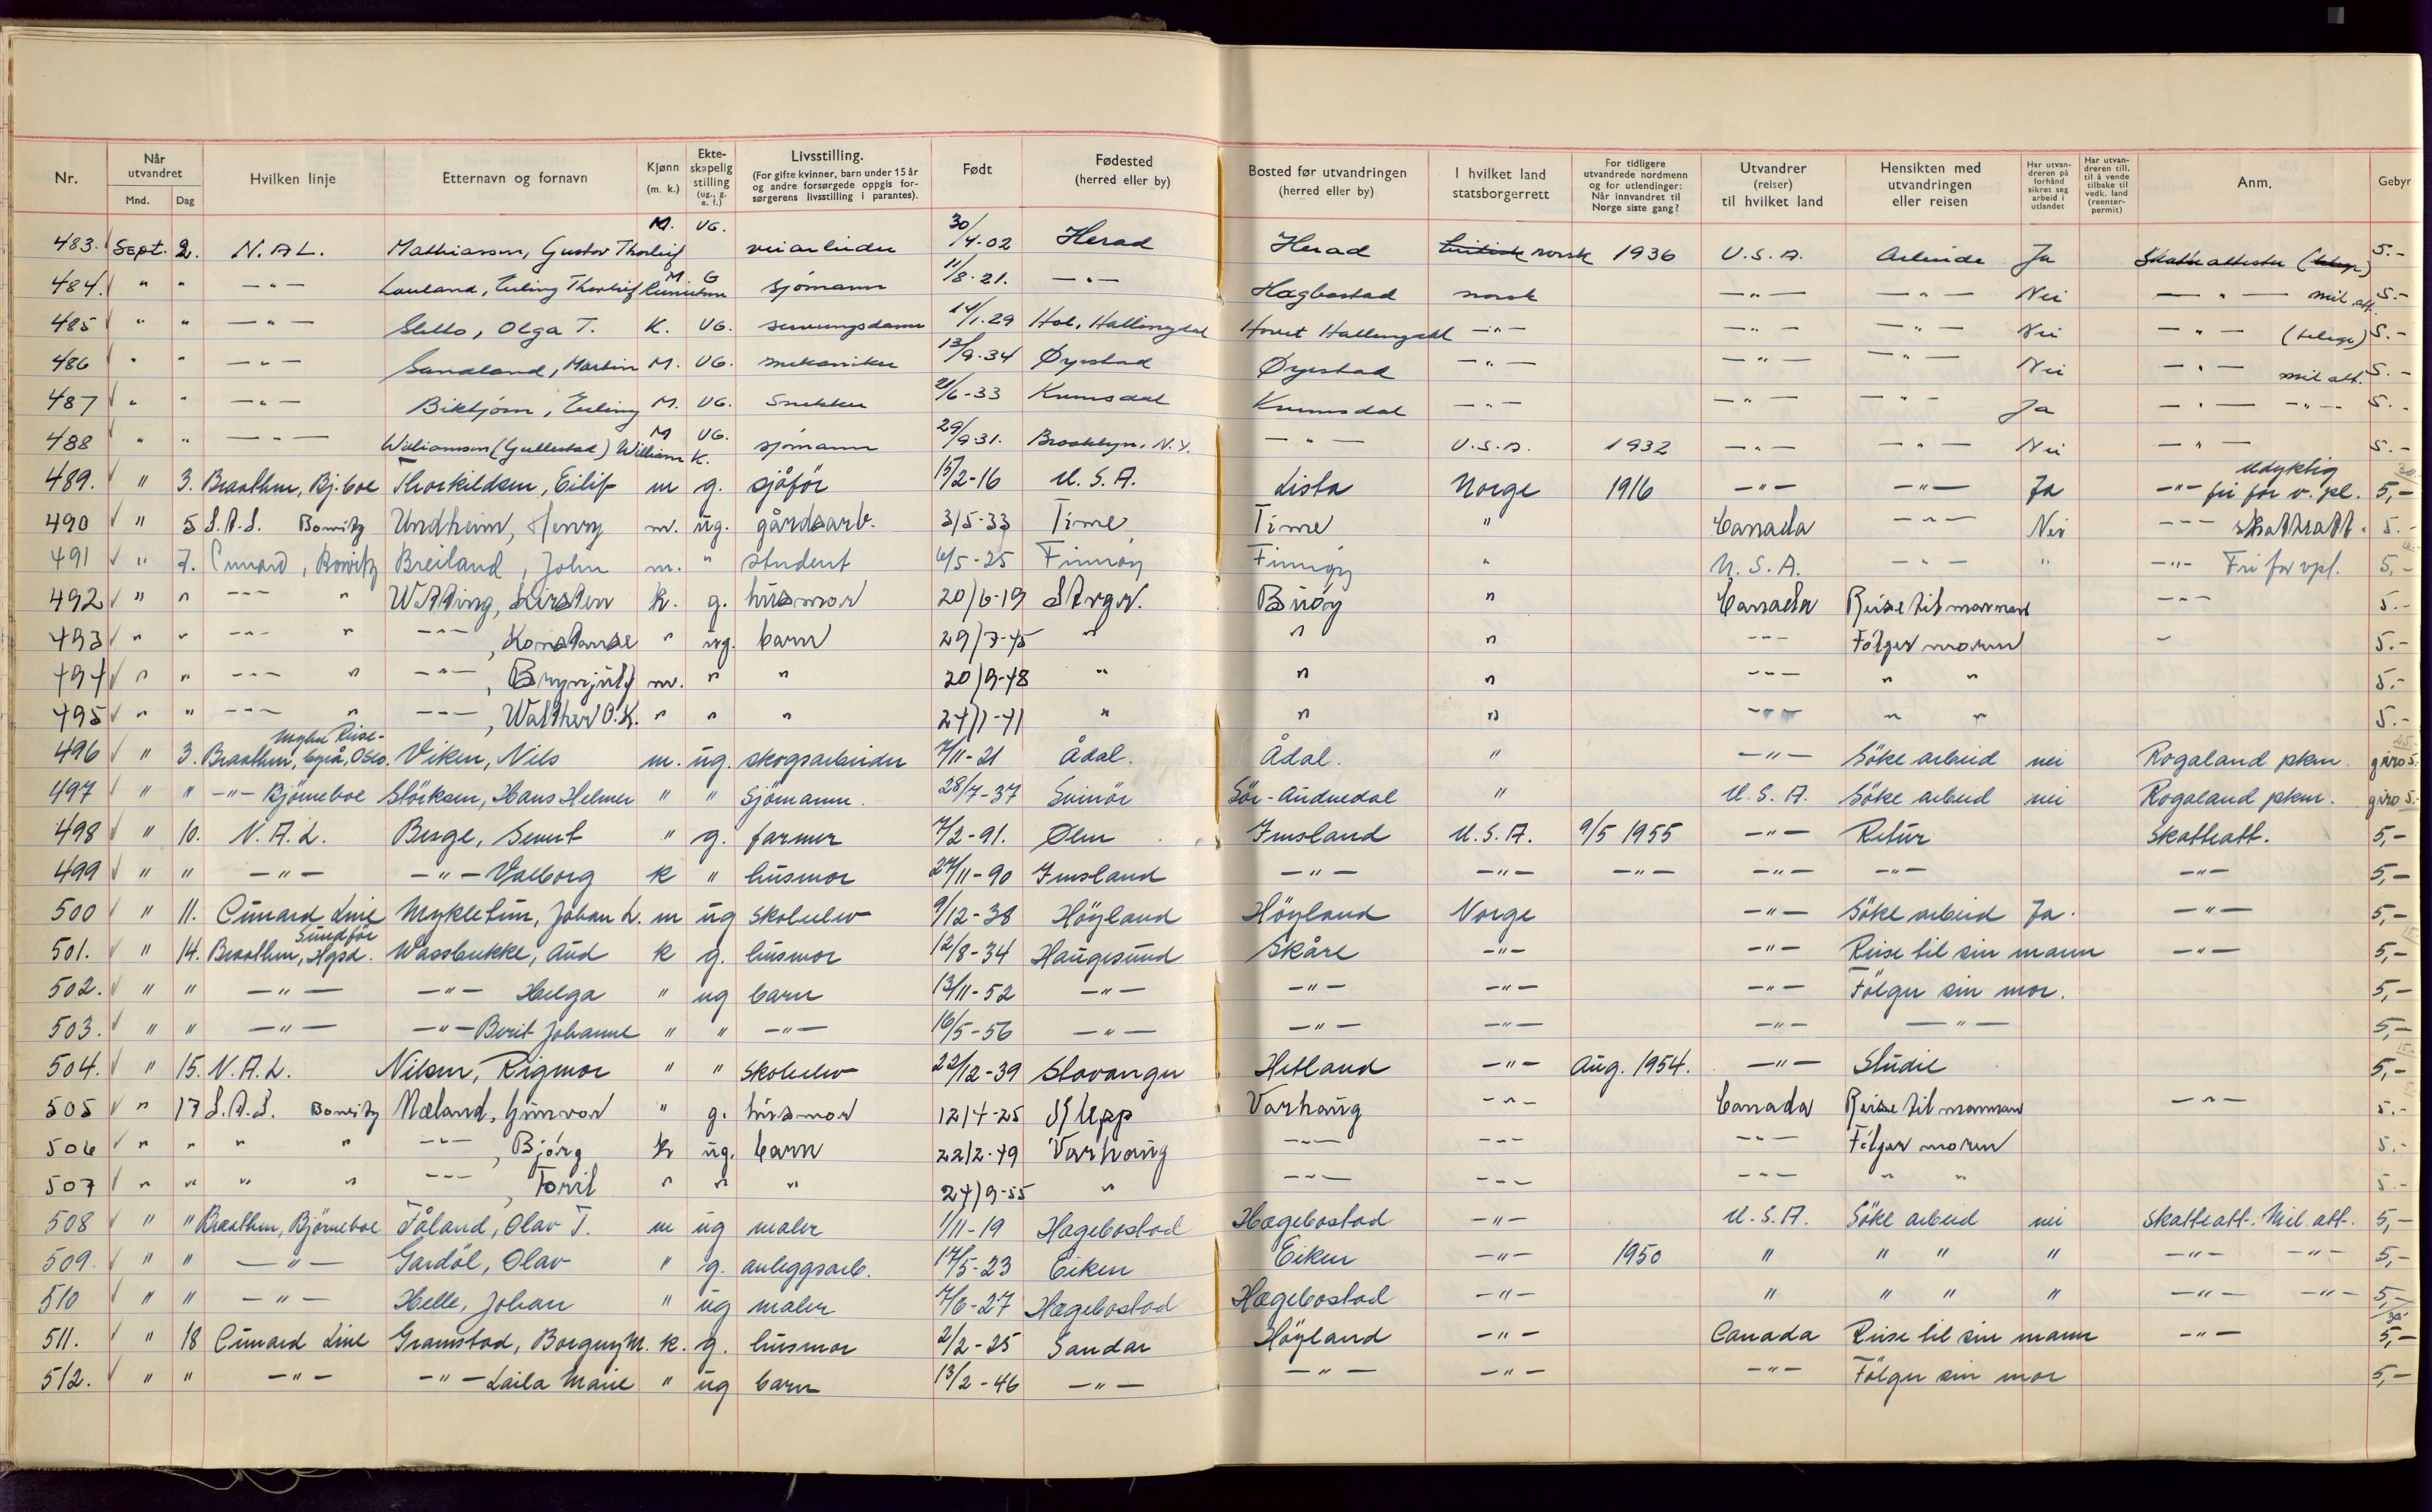 Nr. | Når utvandret Mnd. Dag | Hvilken linje | Etternavn og fornavn | Kjønn (m. k.) | Ekteskapelig stilling (ug., g. e. f.) | Livsstilling. (For gifte kvinner, barn under 15 år og andre forsørgede oppgis forsørgerens livsstilling i parantes). | Født | Fødested (herred eller by) | Bosted før utvandringen (herred eller by) | I hvilket land statsborgerrett | For tidligere utvandrede nordmenn og for utlendinger: Når innvandret til Norge siste gang? | Utvandrer (reiser) til hvilket land | Hensikten med utvandringen eller reisen | Har utvandreren på forhånd sikret seg arbeid i utlandet | Har utvandreren till. til å vende tilbake til vedk. land (reenterpermit) | Anm. | Gebyr
483. Sept. 2. N.A.L. Mathiassen, Gustav Thorleif M. UG. veiarbeider 30/4-02 Herad Herad norsk 1936 U.S.A. Arbeide Ja Skatteattester 5.-
484. " " -"- Lauland, Erling Thorleif M. G sjömann 11/8-21. -"- Hægbostad norsk -"- -"- Nei -"- mil.att. 5.-
485 " " -"- Sletto, Olga T. K. UG. serveringsdame 14/1-29 Hol, Hallingdal Hovet Hallingdal -"- -"- -"- Nei -"- 5.-
486 " " -"- Sandland, Martin M. UG. mekaniker 13/9-34 Øyestad Øyestad -"- -"- -"- Nei -"- mil att. 5.-
487 " " -"- Erling M. UG. Snekker 21/6-33 Kvinesdal Kvinesdal -"- -"- -"- Ja -"- -"- 5.-
488 " " -"- Williamsen (Gullestad) William K. M UG. sjömann 29/9-31. Brooklyn, N.Y. -"- U.S.A. 1932 -"- -"- Nei -"- 5.-
489. " 3. Braathen, Bj.boe Thorkildsen, Eilif m g. sjåför 15/2-16 U.S.A. Lista Norge 1916 -"- -"- Ja -"- udyktig fri for v.pl. 5,-
490 " 5 S.A.S. Bowitz Undheim, Henry m. ug. gårdsarb. 3/5-33 Time Time " Canada -"- Nei -"- skatteatt. 5.-
491 " 7. Cunard, Bowitz Breiland, John m. " student 6/5-25 Finnöy Finnöy " U.S.A. -"- " -"- Fri for vpl. 5,-
492 " " -"- " Watting, Kirsten k. g. husmor 20/6-19 Stvgr. Buöy " Canada Reise til mannen -"- 5.-
493 " " -"- " -"-, Konstanse " ug. barn 29/7-45 " " " -"- Følger moren - 5.-
494 " " -"- " -"-, Brynjulf m. " " 20/9-48 " " " -"- " " 5.-
495 " " -"- " -"-, Walther O.K. " " " 24/1-41 " " " -"- " " 5.-
496 " 3. Braathen, Reisebyrå, Oslo. Viken, Nils m. ug. skogsarbeider 7/11-21 Ådal. Ådal. " -"- Söke arbeid nei Rogaland pkm. giro 5.-
497 " " -"- Bjørneboe Störksen, Hans Helmer " " Sjömann. 28/7-37 Svinör Sör-Audnedal " U.S.A. Söke arbeid nei Rogaland pkm. giro 5.-
498 " 10. N.A.L. Berge, Sevut " g. farmer 7/2-91. Ølen Imsland U.S.A. 9/5 1955 -"- Retur Skatteatt. 5,-
499 " " -"- -"- Valborg k " husmor 27/11-90 Imsland -"- -"- -"- -"- -"- -"- 5,-
500 " 11. Cunard Line Mykletun, Johan L. m ug skoleelev 9/12-38 Höyland Höyland Norge -"- Söke arbeid Ja. -"- 5,-
501. " 14. Braathen, Sundför Hgsd. Wassbukke, Aud k g. husmor 12/8-34 Haugesund Skåre -"- -"- Reise til sin mann -"- 5,-
502. " " -"- -"- Helga " ug barn 13/11-52 -"- -"- -"- -"- Fölger sin mor. 5,-
503. " " -"- -"- Berit Johanne " " -"- 16/5-56 -"- -"- -"- -"- -"- 5,-
504. " 15. N.A.L. Nilsen, Rigmor " " skoleelev 22/12-39 Stavanger Hetland -"- Aug. 1954. -"- Studie 5,-
505 " 17 S.A.S. Bowitz Mæland, Gunvor " g. husmor 12/4-25 Varhaug -"- Canada Reise til mannen -"- 5.-
506 " " " " -"-, Bjørg k ug. barn 22/2-49 Varhaug -"- -"- -"- Følger moren 5.-
507 " " " " -"-, Toril " " " 24/9-55 " -"- -"- -"- " " 5.-
508 " " Braathen, Bjørneboe Fåland, Olav T. m ug maler 1/11-19 Hægebostad Hægebostad -"- U.S.A. Söke arbeid nei Skatteatt. Mil. att. 5,-
509. " " -"- Gardöl, Olav " g. anleggsarb. 17/5-23 Eiken Eiken -"- 1950 " " " " -"- -"- 5,-
510 " " -"- Helle, Johan " ug maler 7/6-27 Hægebostad Hægebostad -"- " " " " -"- -"- 5,-
511. " 18 Cunard Line Gramstad, Borgny M. k. g. husmor 2/2-25 Sandar Höyland -"- Canada Reise til sin mann -"- 5,-
512. " " -"- -"- Laila Marie " ug barn 13/2-46 -"- -"- -"- -"- Fölger sin mor 5,-